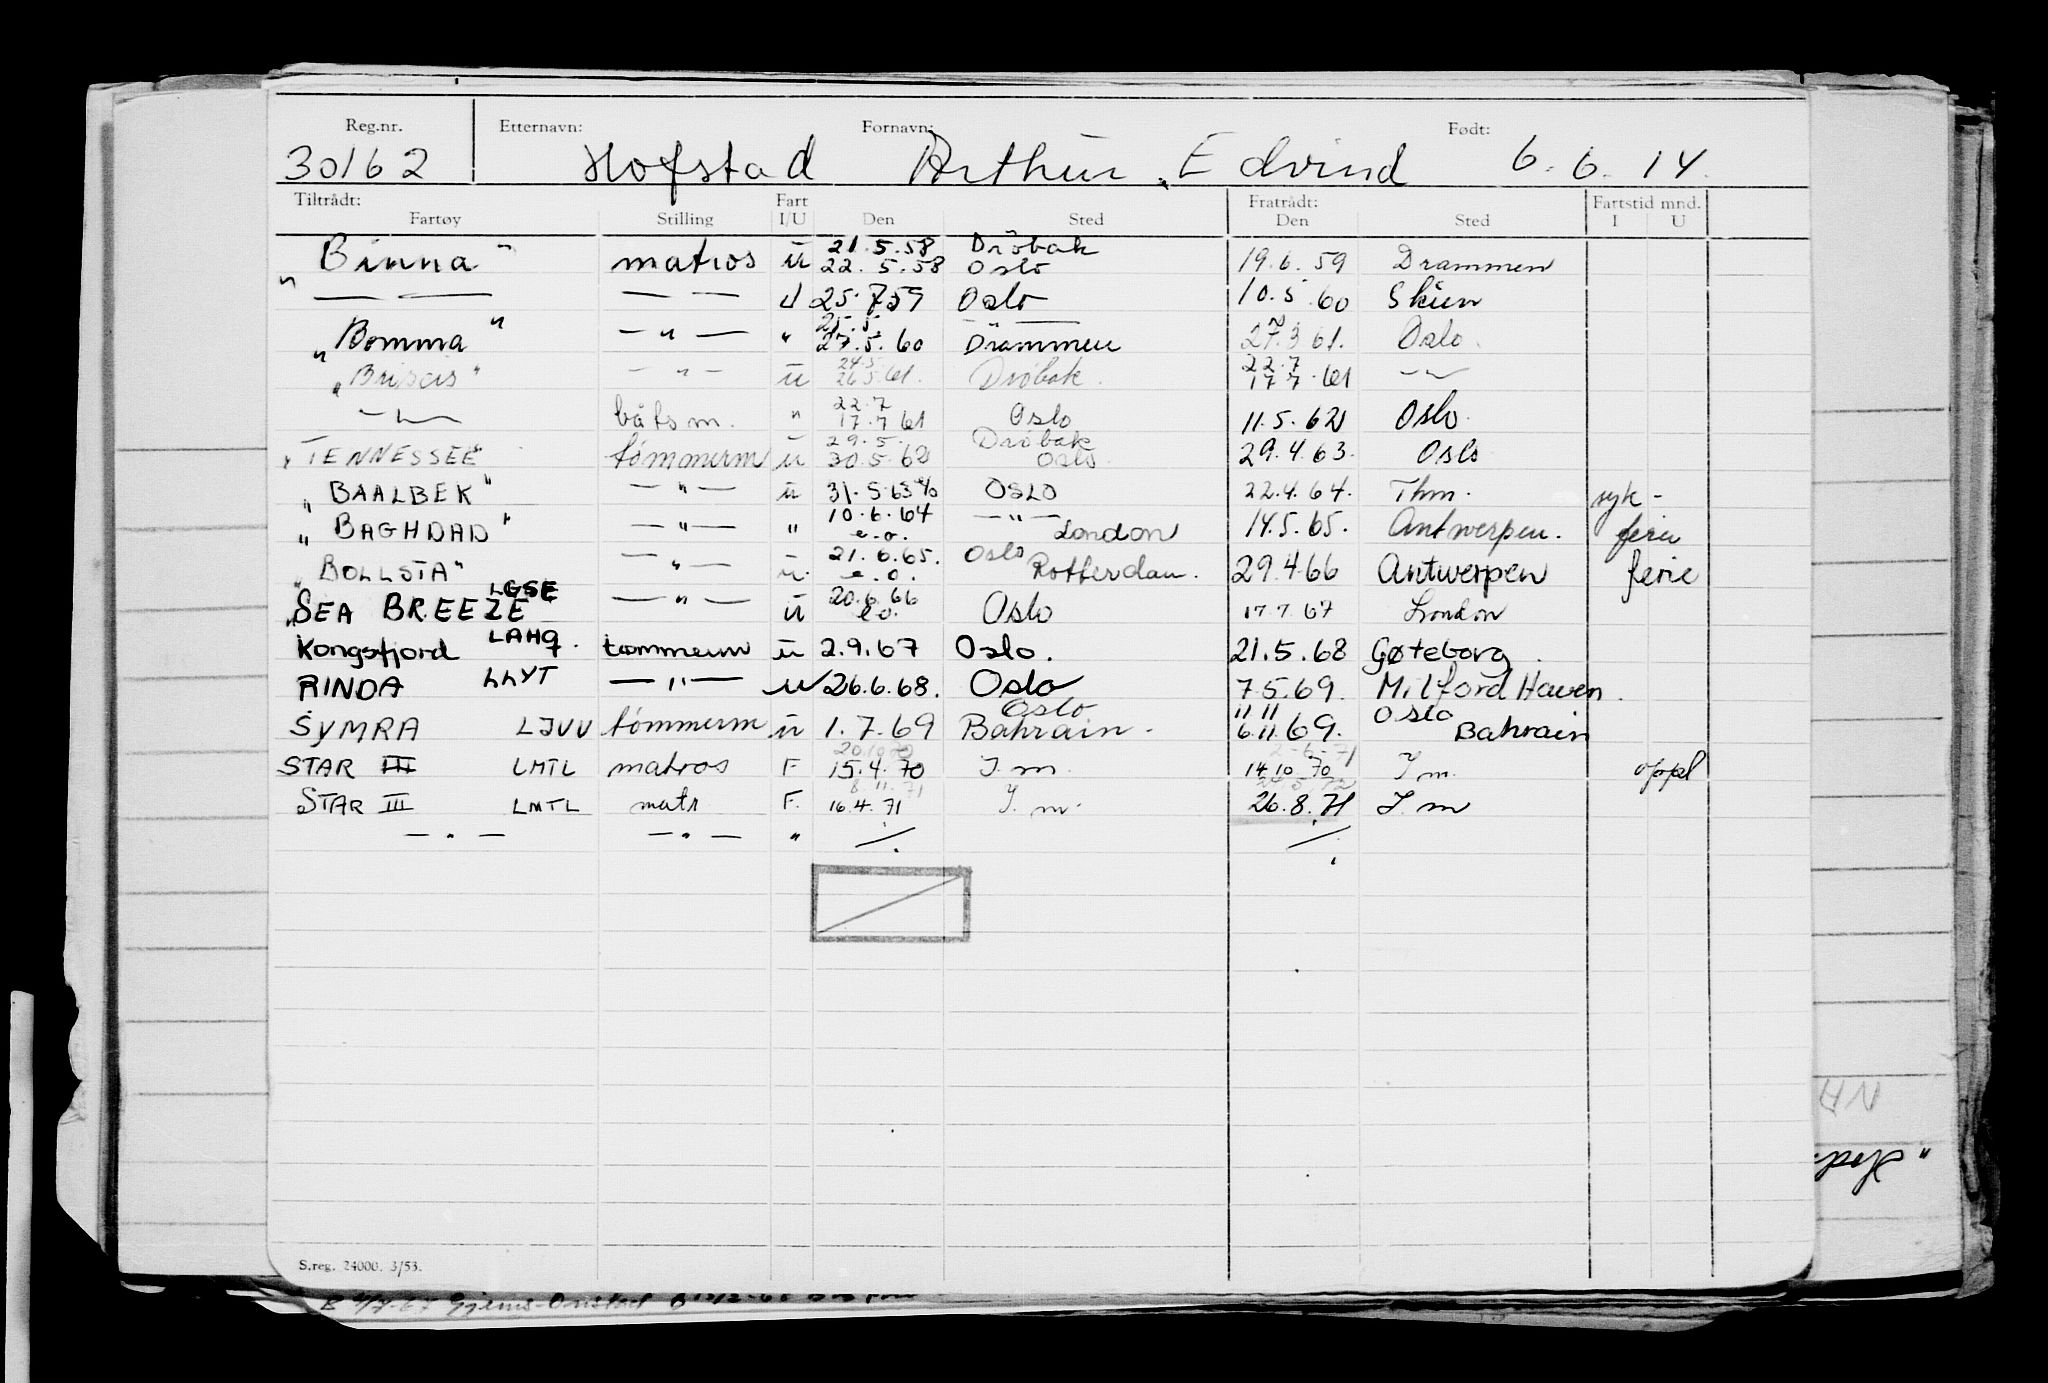 Reg.nr. Etternavn: Fornavn: Født:
30162 Hofstad Arthur Edvind 6.6.14.
Tiltrådt: Fart Fratrådt: Fartstid mnd.
Fartøy Stilling I/U Den Sted Den Sted I U
21.5.58 Drøbak
"Binna" matros ü 22.5.58 Oslo 19.6.59 Drammen
" — — — — U 25.7.59 Oslo 10.5.60 Skien
25.5. —
"Bomma" — " — " 27.5.60 Drammen 27.3.61. Oslo.
24.5. 22.7
"Brisas" — " — ü 26.5.61. Drøbak. 17.7.61 — " —
22.7
— " — båtsm. " 17.7.61 Oslo 11.5.62 Oslo.
29.5. Drøbak
"TENNESSEE" tømmerm ü 30.5.62 Oslo. 29.4.63. Oslo
"BAALBEK" — " — ü 31.5.63 OSLO 22.4.64. Thm. syk -
10.6.64 — " —
"BAGHDAD" — " — " e.o. London 14.5.65. Antwerpen. ferie
21.6.65. Oslo
"BOLLSTA" — " — ü. e.o. Rotterdam. 29.4.66 Antwerpen ferie
LGSE 20.6.66
"SEA BREEZE — " — ü e.o. Oslo 17.7.67 London
Kongsfjord LAHQ. tømmerm ü 2.9.67 Oslo. 21.5.68 Gøteborg.
RINDA LLYT — " — u 26.6.68. Oslo 7.5.69. Milford Haven.
Oslo 11.11 Oslo
SYMRA LJVV tømmerm ü 1.7.69 Bahrain. 6.11.69. Bahrain
20.10.70 2-6-71
STAR III LMTL matros F 15.4.70 I.m. 14.10.70 I m. oppl
8.11.71
STAR III LMTL matr F. 16.4.71 I.m. 26.8.71 I.m
— " — — " — " /. /.
S.reg. 24000. 3/53.